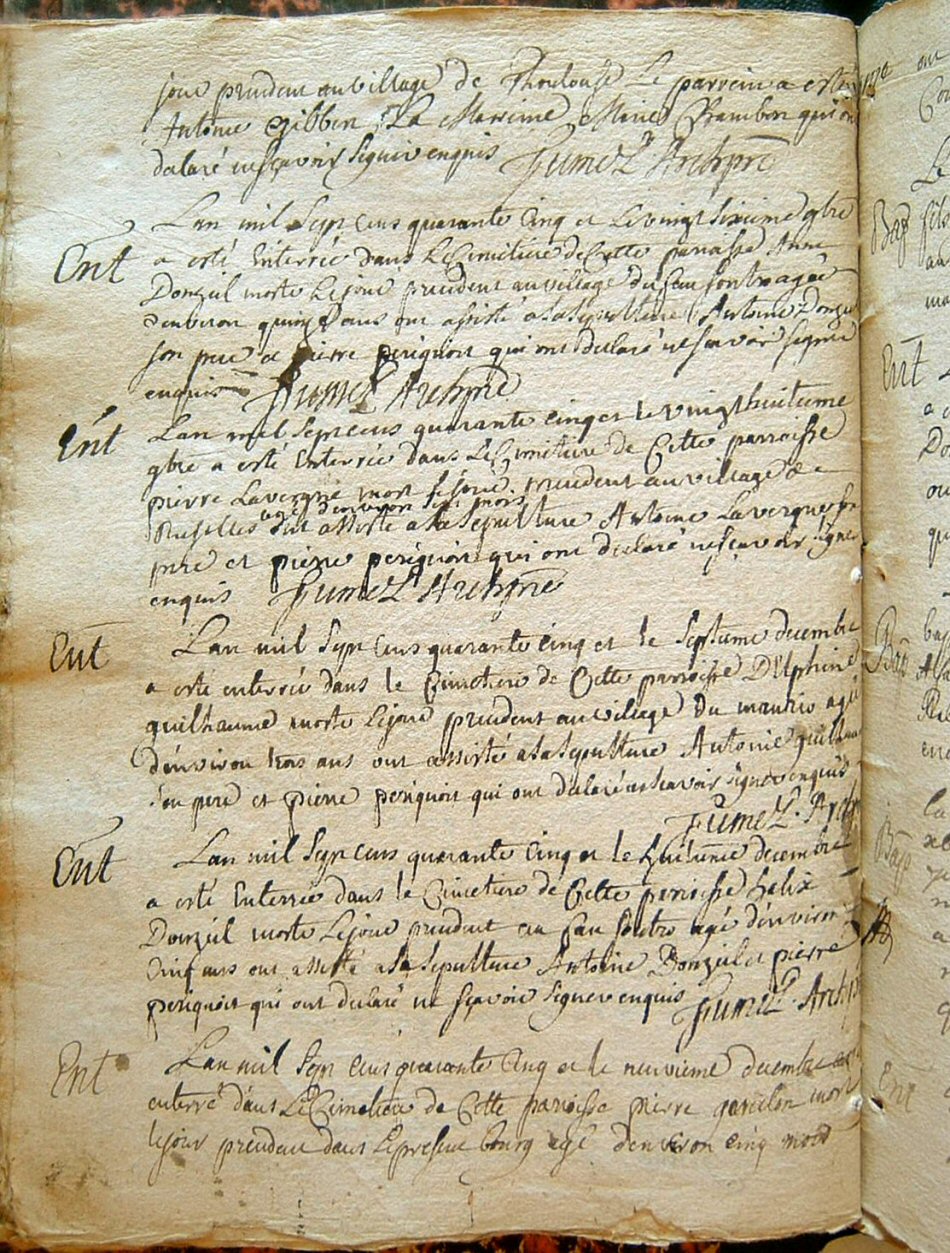 jour precedent au village de Thoulouse Le parrein a esté
Antoine Gibbin La Mareine Marie Chambon qui on
declaré ne sçavoir signer enquis Fumel Archpre
Ent
Lan mil Sept cens quarante Cinq et Le vingt sixieme 9bre
a esté Enterrée dans Le Cimetiere de Cette paroisse Anne
Donzeil morte Le jour precedent au village du fau agée
denviron quinze ans ont assisté a la Sepulture Antoine Donzei
son pere et pierre perignon qui ont declaré ne scavoir signer
enquis Fumel Archpre
Ent
Lan mil Sept cens quarante cinq et le vingt huitieme
9bre a esté Enterrée dans Le Cimetiere de Cette parroisse
pierre Lavergne mort le jour precedent au village de
agé denviron six mois
ont assisté a la Sepulture Antoine Lavergne
pere et pierre perignon qui ont declaré ne sçavoir signer
enquis Fumel Archpre
Ent
Lan mil Sept cens quarante Cinq et le septieme decembre
a esté enterrée dans le Cimetiere de Cette parroisse Delphine
guilhaume morte Le jour precedent au village du agée
denviron trois ans ont assisté a la Sepulture Antoine guilhau
son pere et pierre perignon qui ont declaré ne scavoir signer enquis
Fumel Archp
Ent
Lan mil Sept cens quarante Cinq et le huitieme decembre
a esté Enterrée dans le Cimetiere de Cette paroisse helix
Donzeil morte Le jour precedent au fau agé denviron
Cinq ans ont assisté a la Sepulture Antoine Donzeil et pierre
perignon qui ont declaré ne sçavoir signer enquis Fumel Archp
Ent
Lan mil Sept cens quarante Cinq et le neuvieme decembre
enterré dans Le Cimetiere de Cette paroisse pierre mort
le jour precedent dans Le present bourg agé denviron cinq mois